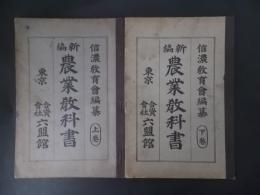 信濃教育會編纂
新編
農業教科書
上卷
東京
合資會社六盟館
信濃教育會編纂
新編
農業教科書
下卷
東京
合資會社六盟館